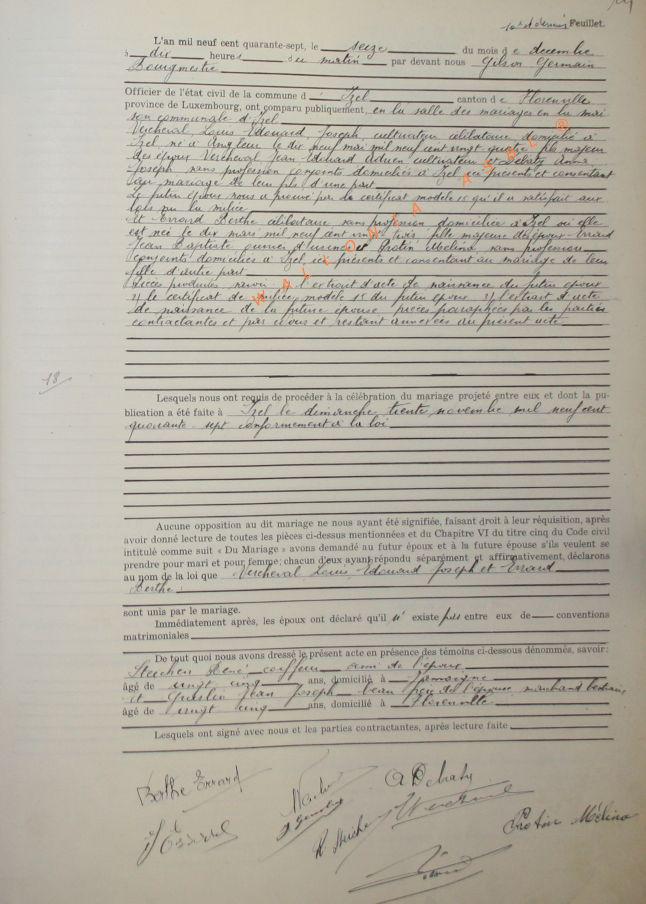 10e et dernier Feuillet.
L'an mil neuf cent quarante-sept, le seize du mois de decembre
à dix heures du matin par devant nous Gilson Germain
Bourgmestre
Officier de l'état civil de la commune d'Izel canton de Florenville
province de Luxembourg, ont comparu publiquement, en la salle des mariages en la mai
son communale d'Izel
Vercheval, Louis, Edouard, Joseph, cultivateur célibataire, domicilié à
Izel né à le dix neuf mai mil neuf cent vingt quatre fils majeur
des époux Vercheval Jean Edouard cultivateur et Debaty Anna
Joseph sans profession conjoints domiciliés à Izel ici présents et consentant
au mariage de leur fils d'une part
Le futur époux nous a prouvé par le certificat modèle 15 qu'il a satisfait aux
lois sur la milice
Et Errard Berthe célibataire sans profession domiciliée à Izel où elle
est née le dix mars mil neuf cent vingt fille majeure des époux Errard
Jean Baptiste ouvrier d'usine et Protin Mélina sans profession
conjoints domiciliés à Izel, ici présents et consentant au mariage de leur
fille d'autre part
Pièces produites savoir 1) l'extrait d'acte de naissance du futur époux
2) le certificat de milice modèle 15 du futur époux 3) l'extrait d'acte
de naissance de la future épouse pièces paraphées par les parties
contractantes et par nous et restant annexées au présent acte
WALLONIA ASBL ®
18
Lesquels nous ont requis de procéder à la célébration du mariage projeté entre eux et dont la pu-
blication a été faite à Izel le dimanche trente novembre mil neuf cent
quarante sept conformement à la loi
Aucune opposition au dit mariage ne nous ayant été signifiée, faisant droit à leur réquisition, après
avoir donné lecture de toutes les pièces ci-dessus mentionnées et du Chapitre VI du titre cinq du Code civil
intitulé comme suit « Du Mariage » avons demandé au futur époux et à la future épouse s'ils veulent se
prendre pour mari et pour femme; chacun d'eux ayant répondu séparément et affirmativement, déclarons
au nom de la loi que Vercheval Louis, Edouard Joseph et Errard
Berthe
sont unis par le mariage.
Immédiatement après, les époux ont déclaré qu'il n'existe pas entre eux de conventions
matrimoniales
De tout quoi nous avons dressé le présent acte en présence des témoins ci-dessous dénommés, savoir:
Steichen René coiffeur ami de l'époux
âgé de vingt cinq ans, domicilié à Jamoigne
et Jean Joseph beau frère de l'épouse marchand
âgé de vingt cinq ans, domicilié à Florenville
Lesquels ont signé avec nous et les parties contractantes, après lecture faite
Berthe Errard
A Debaty
Protin Mélina